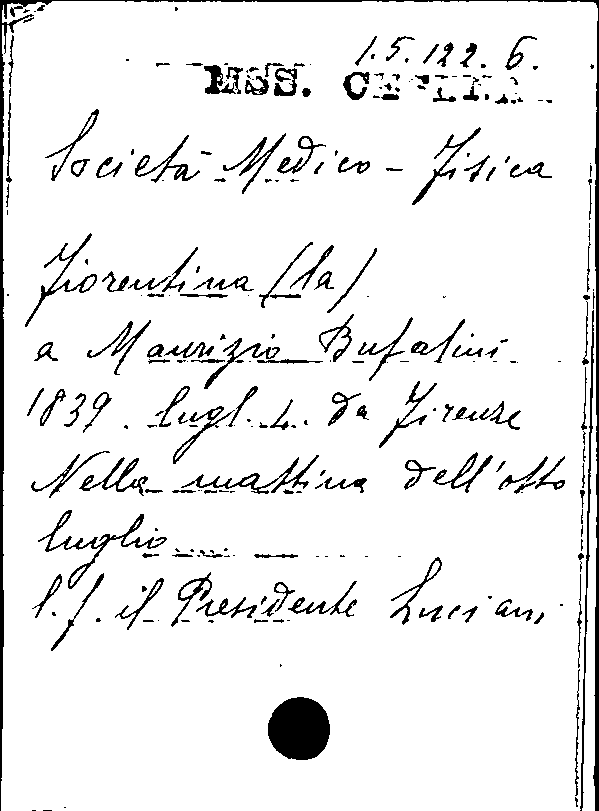 1.5.122.6.
MSS.
Società Medico - Fisica
Fiorentina (la)
a Maurizio Bufalini
1839. lugl. 4. da Firenze
Nella mattina dell'otto
luglio
l.f. il Presidente Luciani